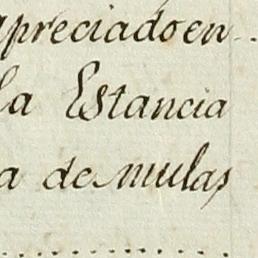 apreciado en ..
la Estancia
a de mulas
..............